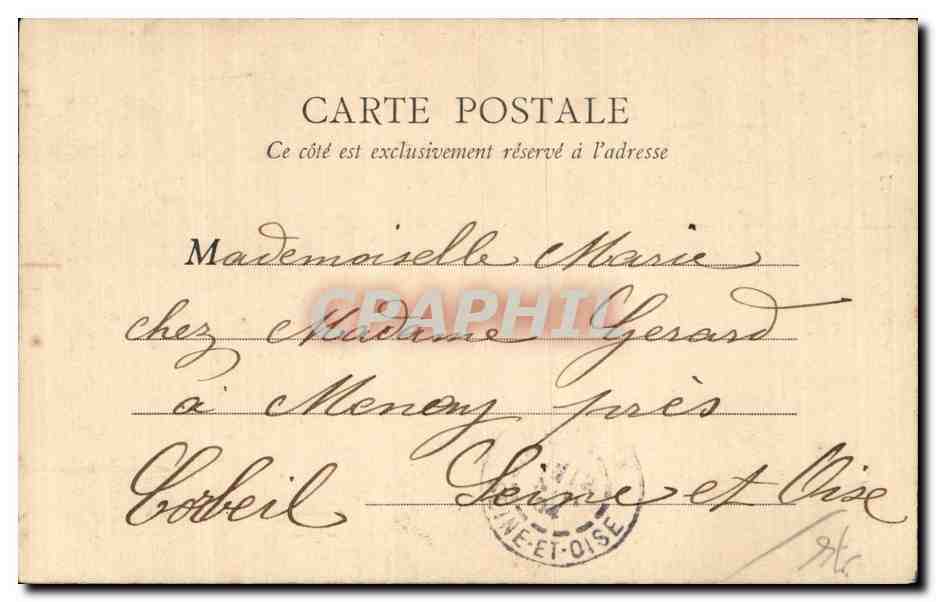 CARTE POSTALE
Ce côté est exclusivement réservé à l'adresse
Mademoiselle Marie
CPAPHIL
chez Madame Gerard
à Menecy près
Corbeil Seine et Oise
04
INE-ET-OISE